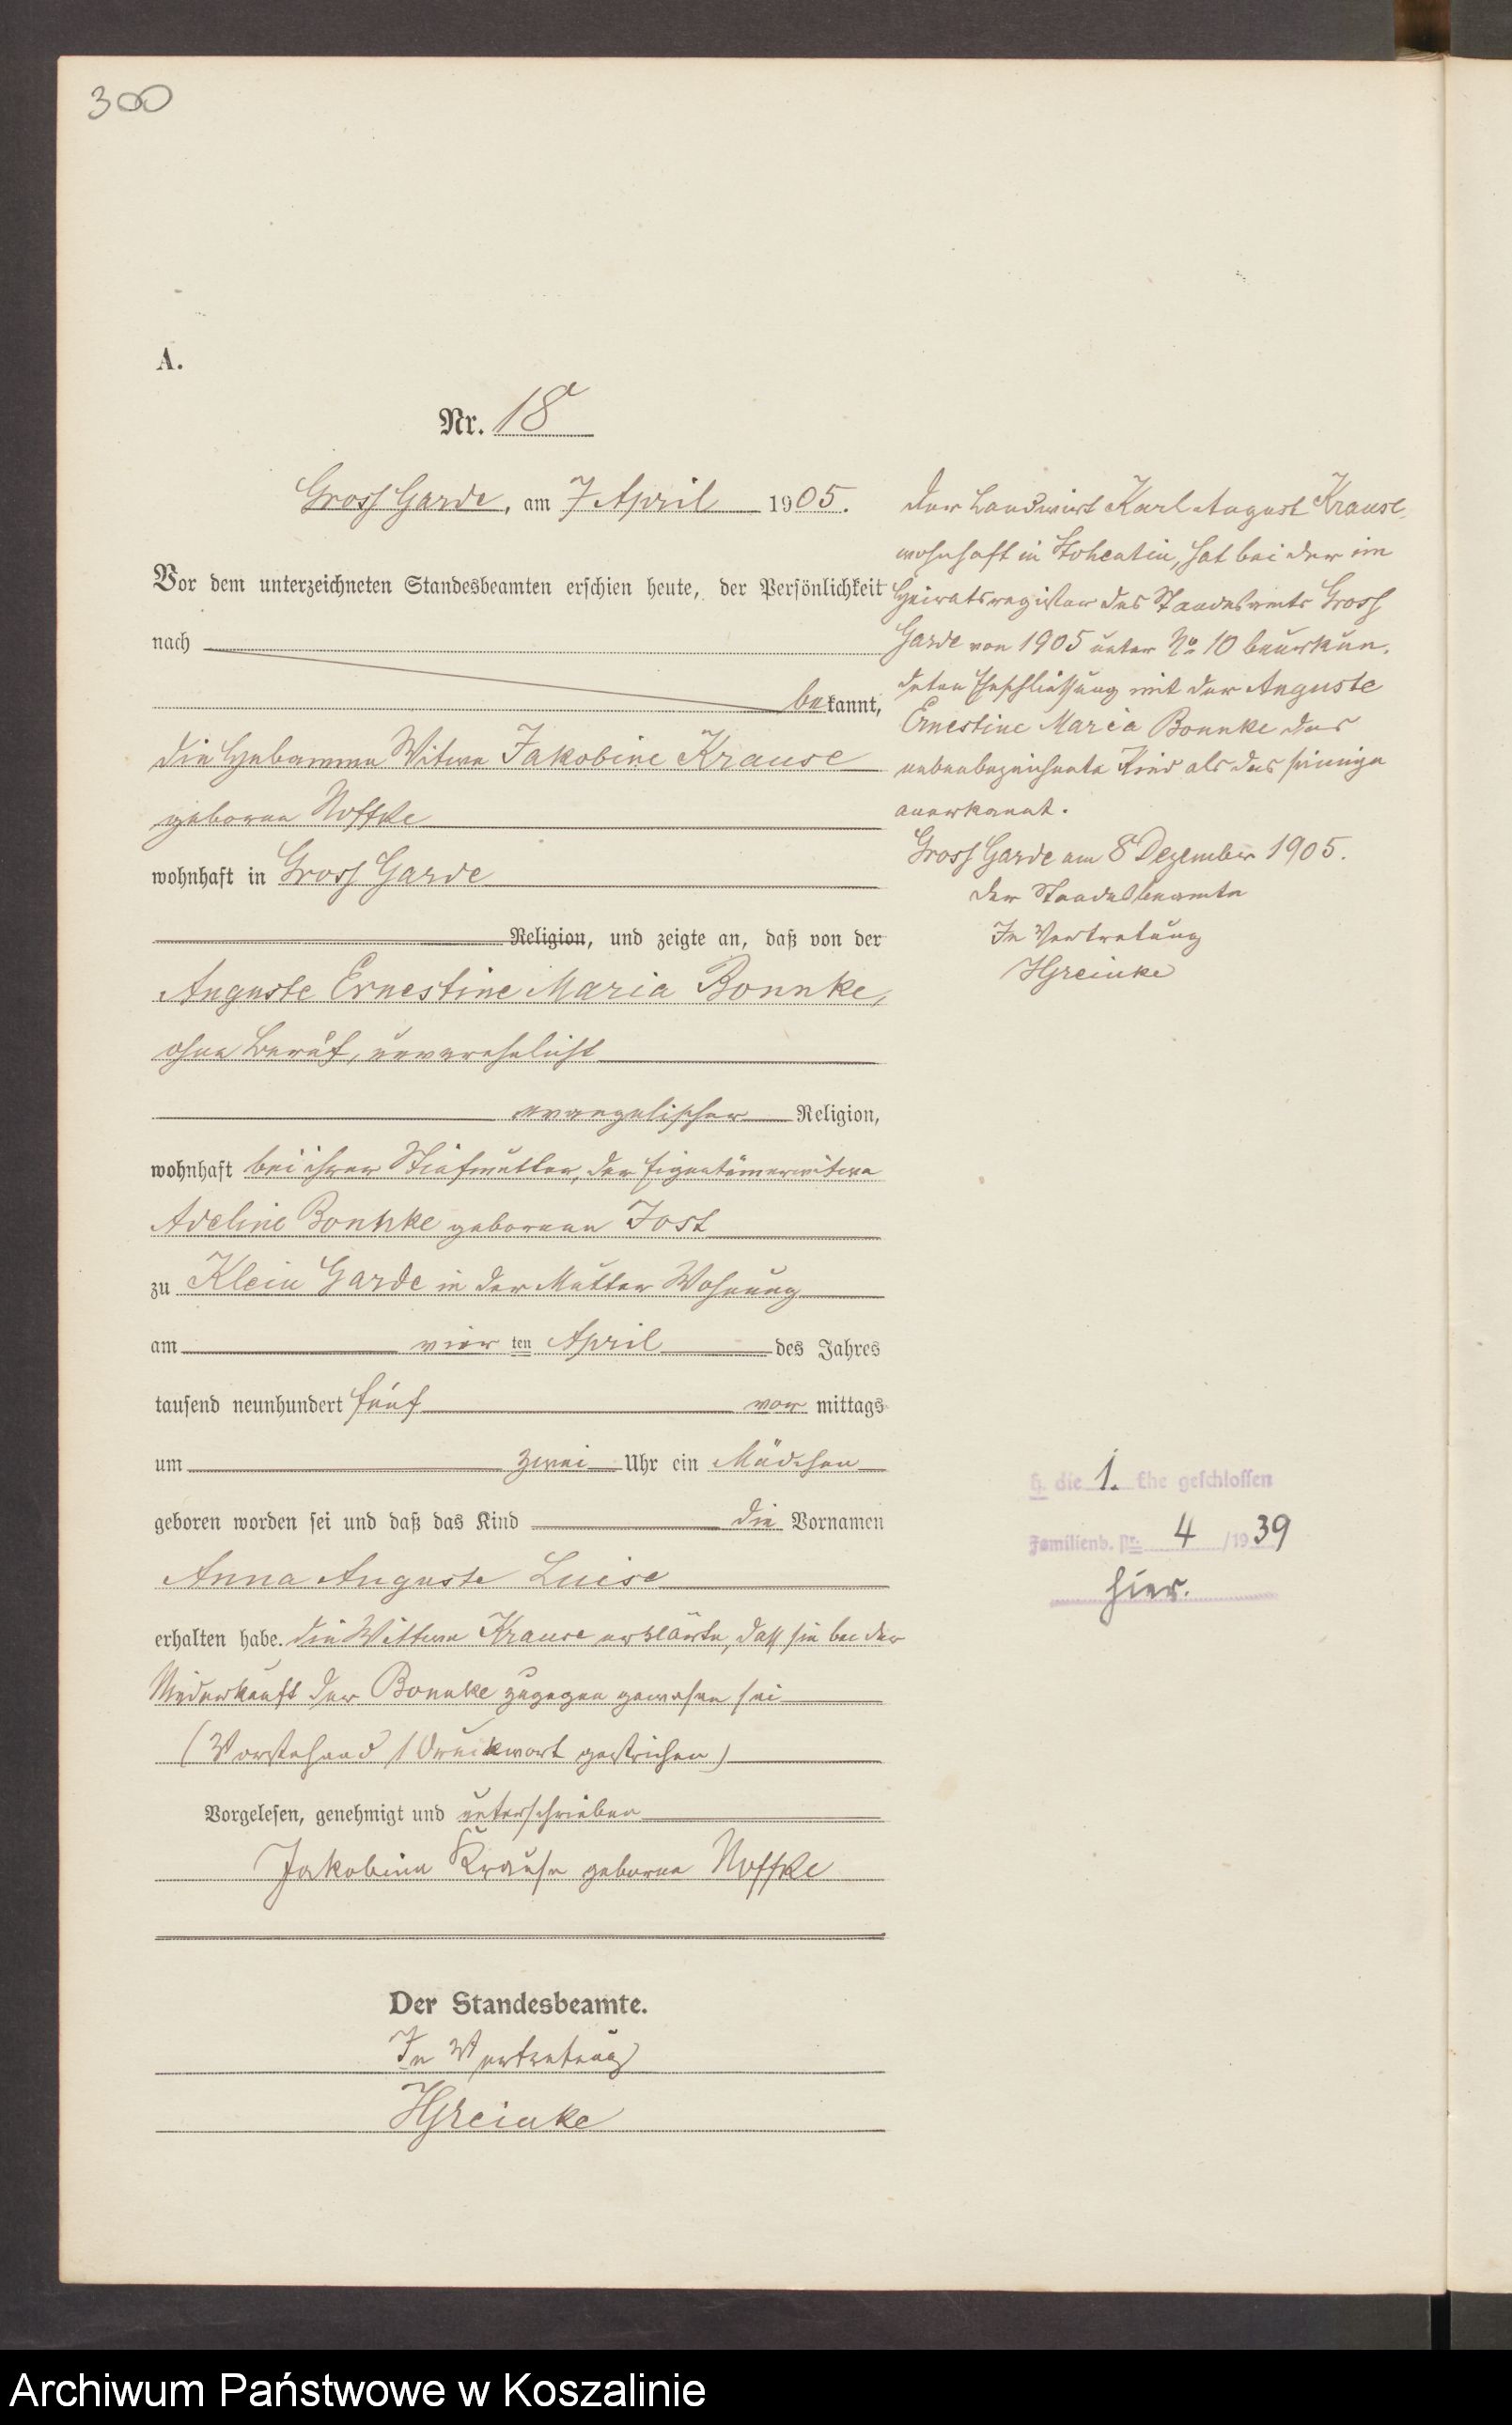 300
A.
Nr. 18
Gross Garde, am 7 April 1905.
Vor dem unterzeichneten Standesbeamten erschien heute, der Persönlichkeit
nach
bekannt,
die Hebamme Witwe Jakobine Krause
geborene Noffke
wohnhaft in Gross Garde
Religion, und zeigte an, daß von der
Auguste Ernestine Maria Bonnke,
ohne Beruf, unverehelicht
evangelischer Religion,
wohnhaft bei ihrer Stiefmutter, der Eigentümerwitwe
Adeline Bonnke geborenen Jost
zu Klein Garde in der Mutter Wohnung
am vier ten April des Jahres
tausend neunhundert fünf vor mittags
um zwei Uhr ein Mädchen
geboren worden sei und daß das Kind die Vornamen
Anna Auguste Luise
erhalten habe. Die Wittwe Krause erklärte, daß sie bei der
Niederkunft der Bonnke zugegen gewesen sei
(Vorstehend 1 Druckwort gestrichen)
Vorgelesen, genehmigt und unterschrieben
Jakobine Krause geborene Noffke
Der Standesbeamte.
In Vertretung
HGreinke
Der Landwirt Karl August Krause
wohnhaft in Stohentin, hat bei der im
Heiratsregister des Standesamts Gross
Garde von 1905 unter No 10 beurkun.
deten Eheschließung mit der Auguste
Ernestine Maria Bonnke das
nebenbezeichnete Kind als das seinige
anerkannt.
Gross Garde am 8 Dezember 1905.
Der Standesbeamte
In Vertretung
HGreinke
H. die 1. Ehe geschlossen
Familienb. Nr. 4 /1939
hier.
Archiwum Państwowe w Koszalinie